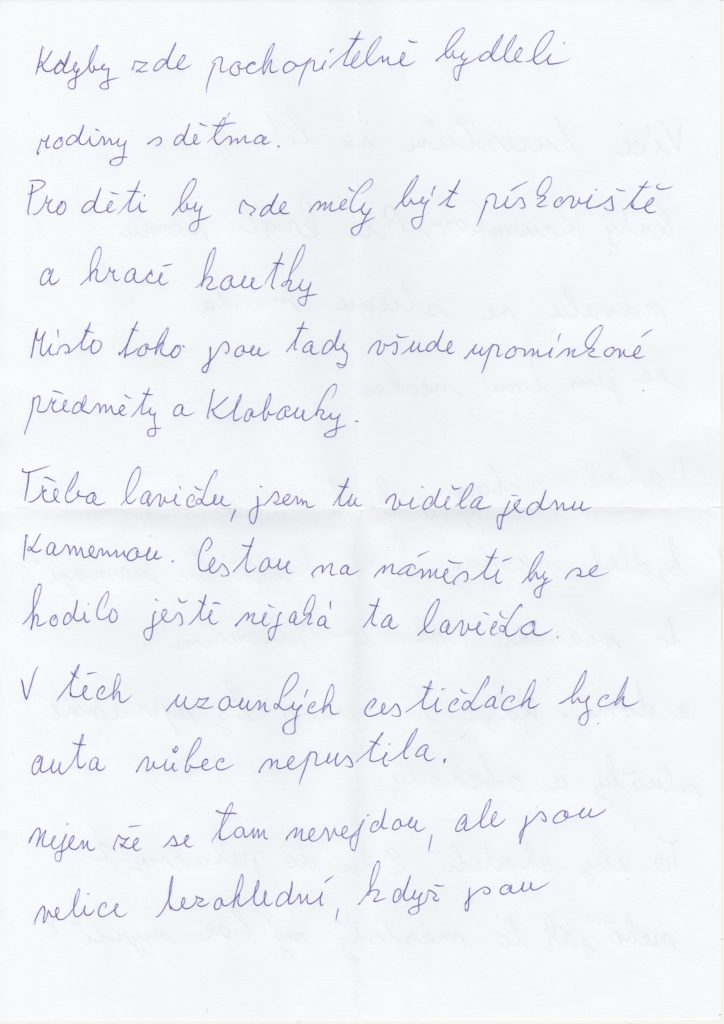 Kdyby zde pochopitelně bydleli
rodiny s dětma.
Pro děti by zde měly být pískoviště
a hrací koutky
Místo toho jsou tady všude upomínkové
předměty a Klobouky.
Třeba lavičku, jsem tu viděla jednu
Kamennou. Cestou na náměstí by se
hodilo ještě nějaká ta lavička.
V těch uzounkých cestičkách bych
auta vůbec nepustila.
Nejen že se tam nevejdou, ale jsou
velice bezohlední, když jsou